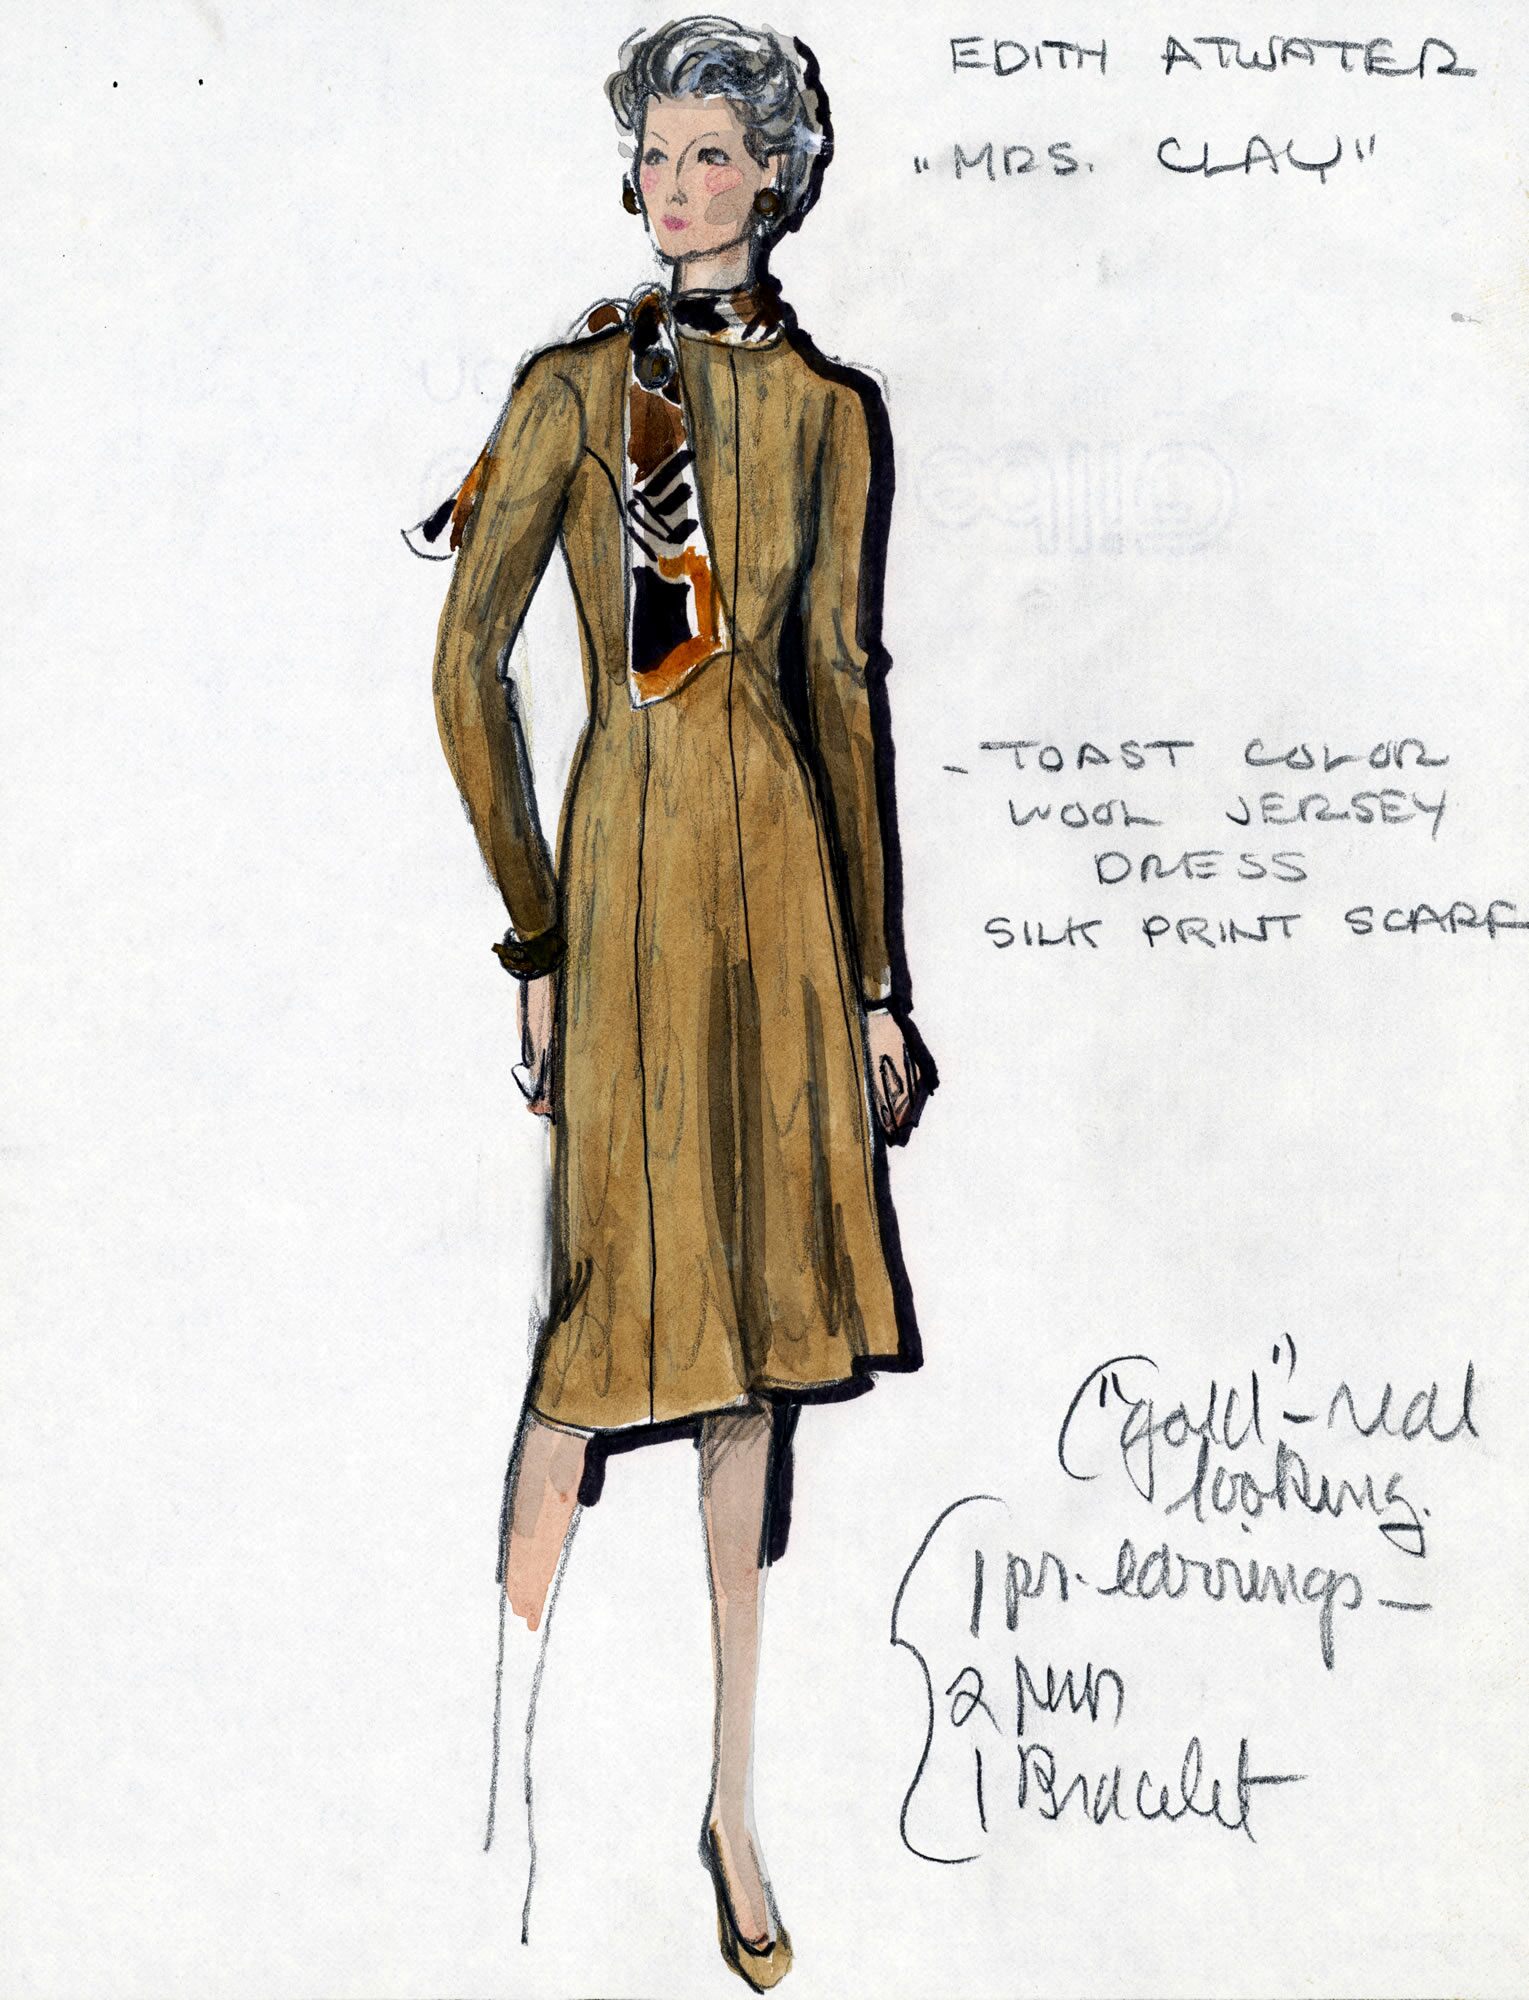 EDITH ATWATER
"MRS. CLAY"
- TOAST COLOR
WOOL JERSEY
DRESS
SILK PRINT SCARF
("gold" - real
looking.
1 pr. earrings -
2 pins
1 Bracelet